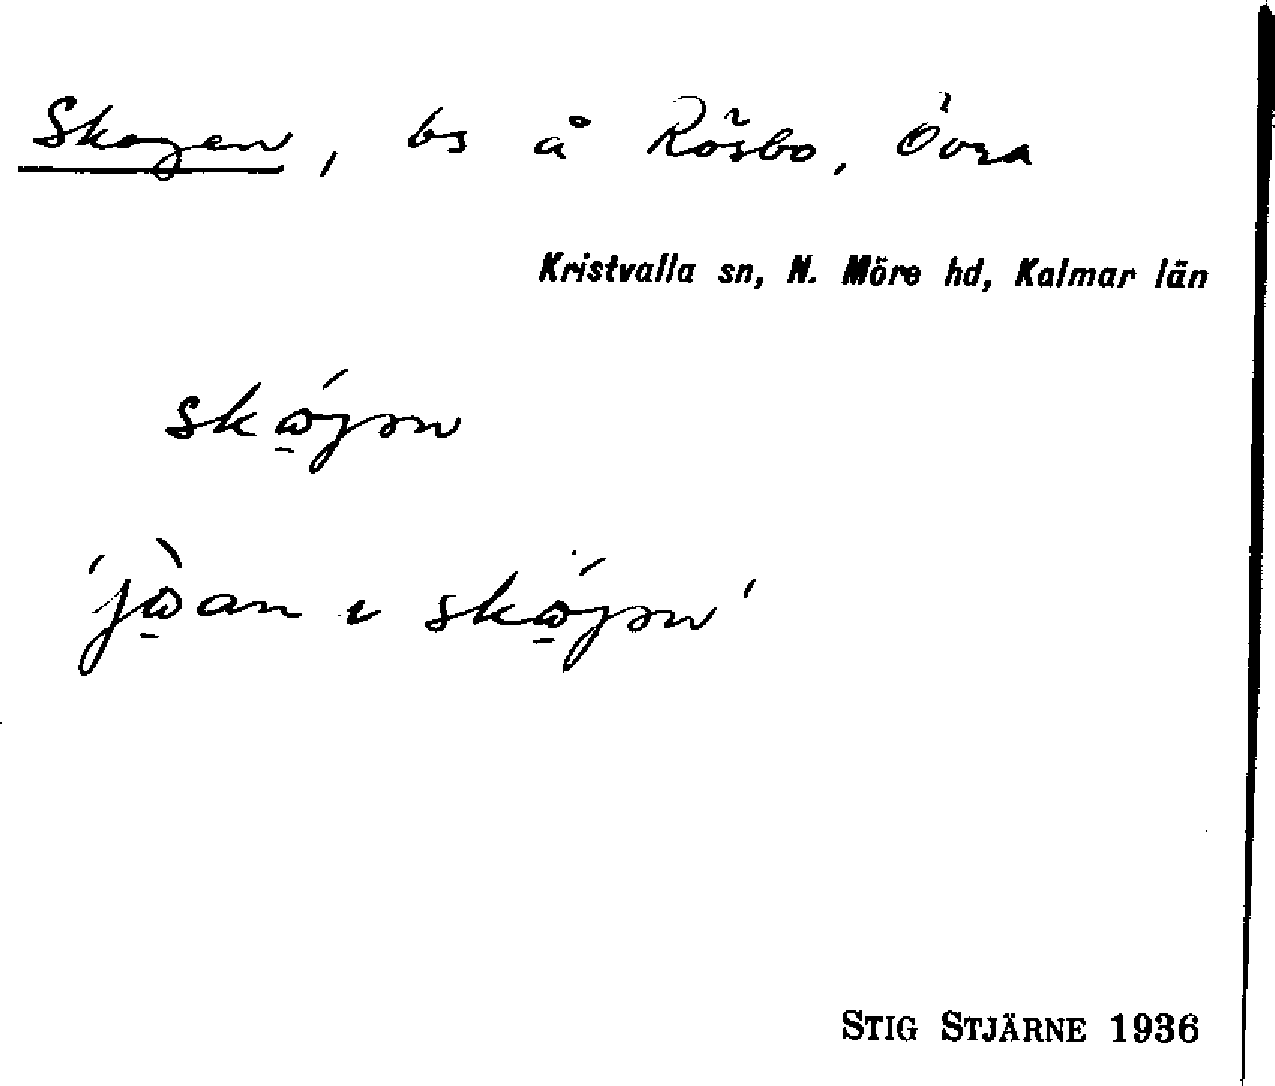 Skogen, bs å Rösbo, Övra
Kristvalla sn, N. Möre hd, Kalmar län
skώ̱gən
'jὼ̱an ı skώ̱gən'
STIG STJÄRNE 1936